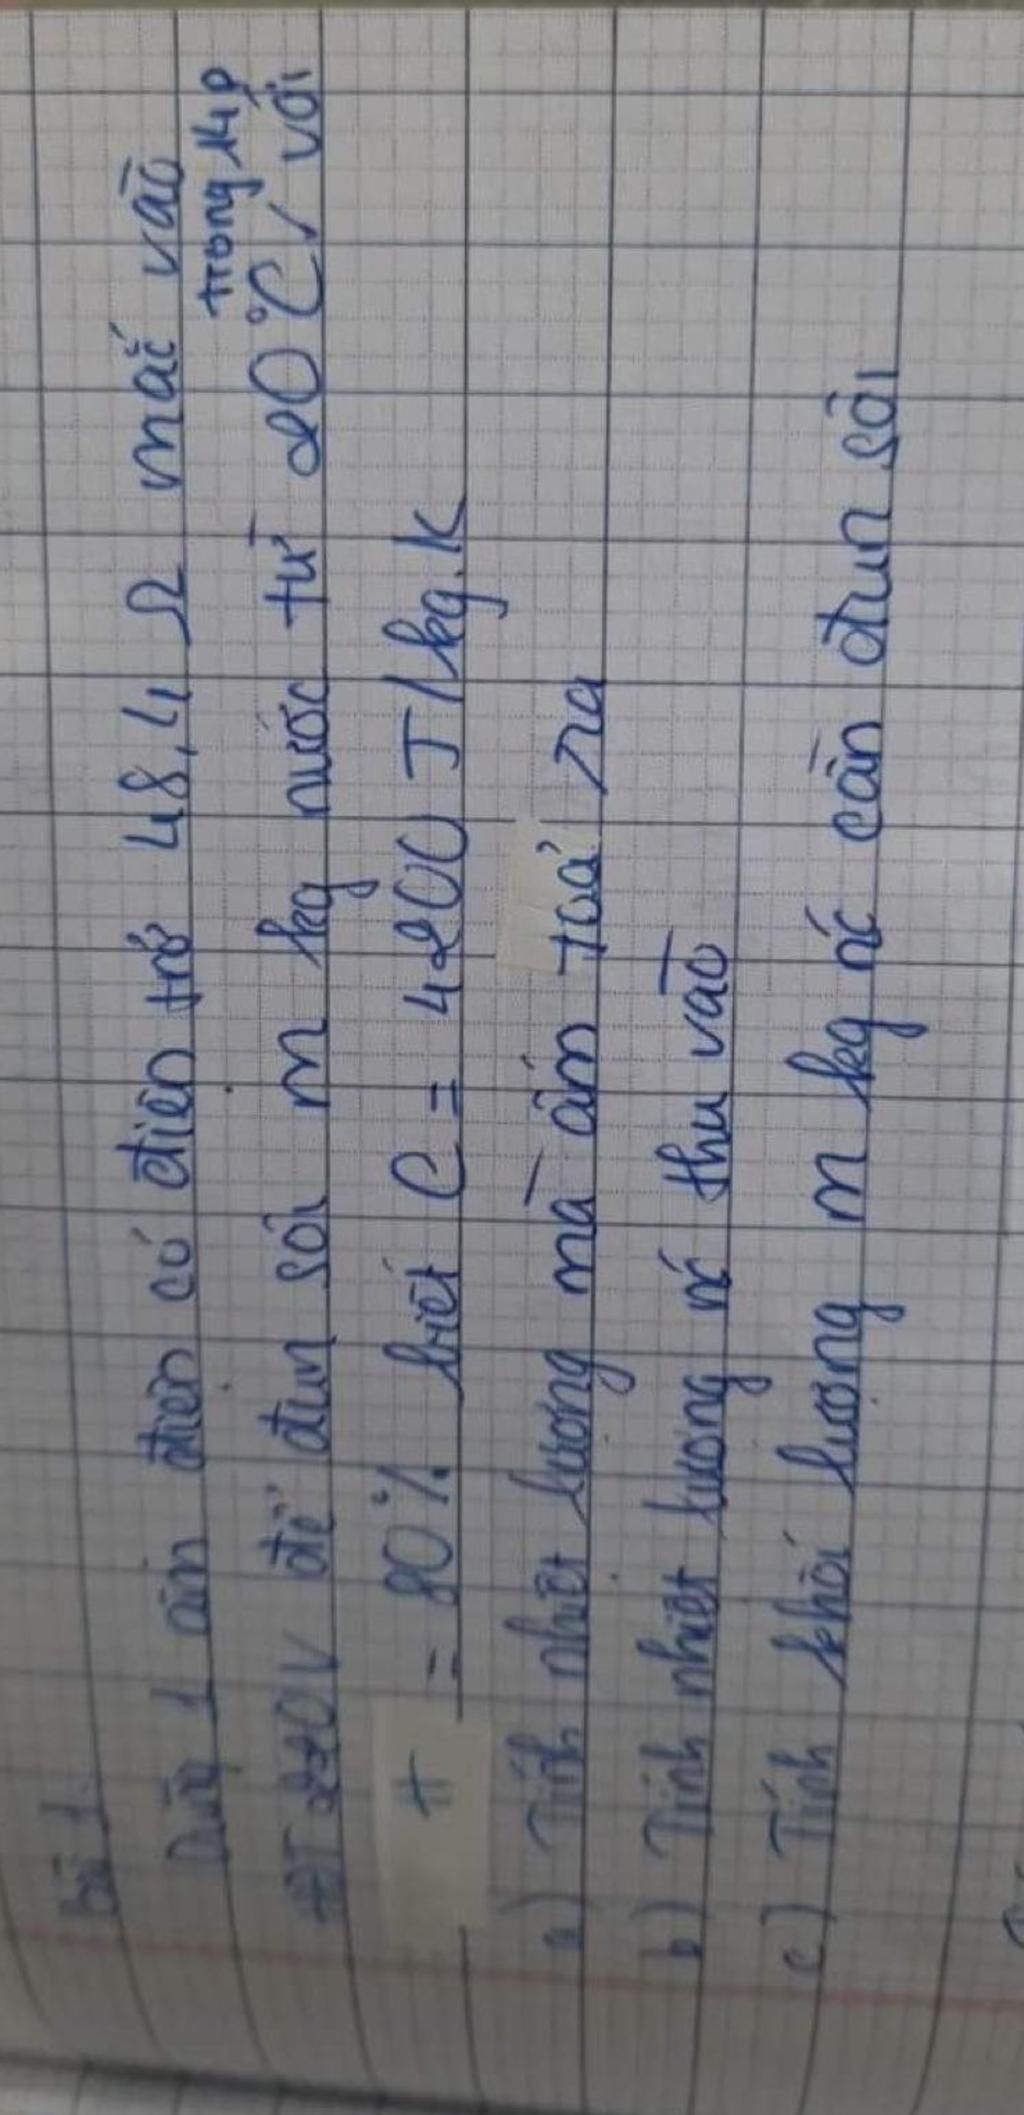 Bài 1
Dùng 1 ấm điện có điện trở 48,4 Ω mắc vào
HĐT 220V để đun sôi m kg nước từ 20°C, với
trong 14p
H = 80% biết C = 4200 J/kg.K
a) Tính nhiệt lượng mà ấm toả ra
b) Tính nhiệt lượng nc thu vào
c) Tính khối lượng m kg nc cần đun sôi